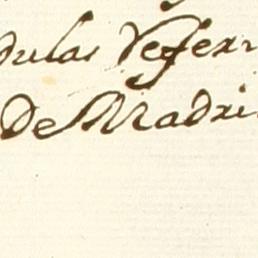 dulas Referi
De Madri